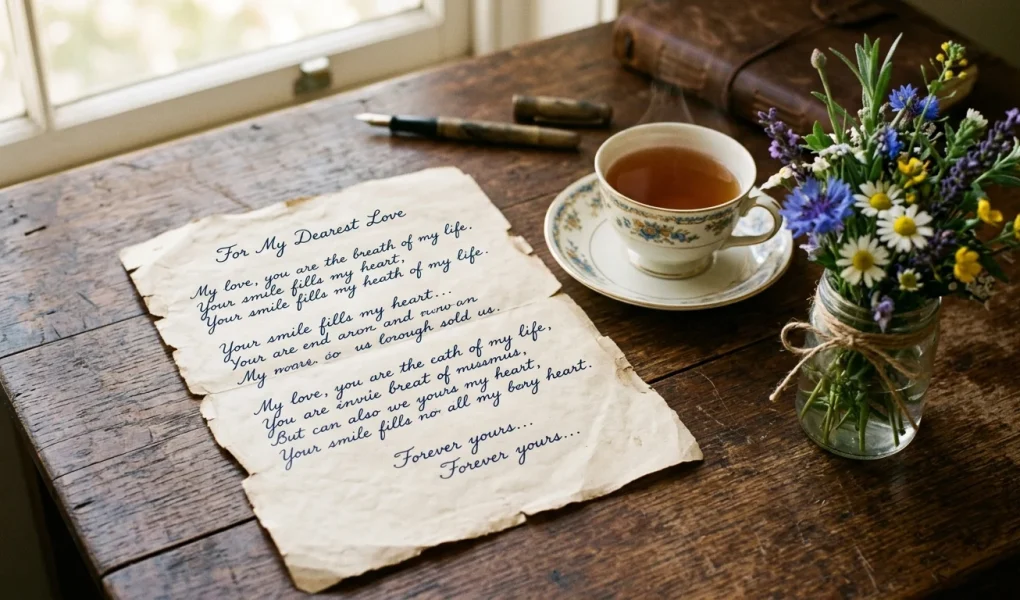 For My Dearest Love
My love, you are the breath of my life.
Your smile fills my heart,
Your smile fills my heath of my life.
Your smile fills my heart...
Your are end aron and own an
My more. co us lorough sold us.
My love, you are the eath of my life,
You are envie breat of missmus,
But can also we yours my heart,
Your smile fills no all my bory heart.
Forever yours...
Forever yours...